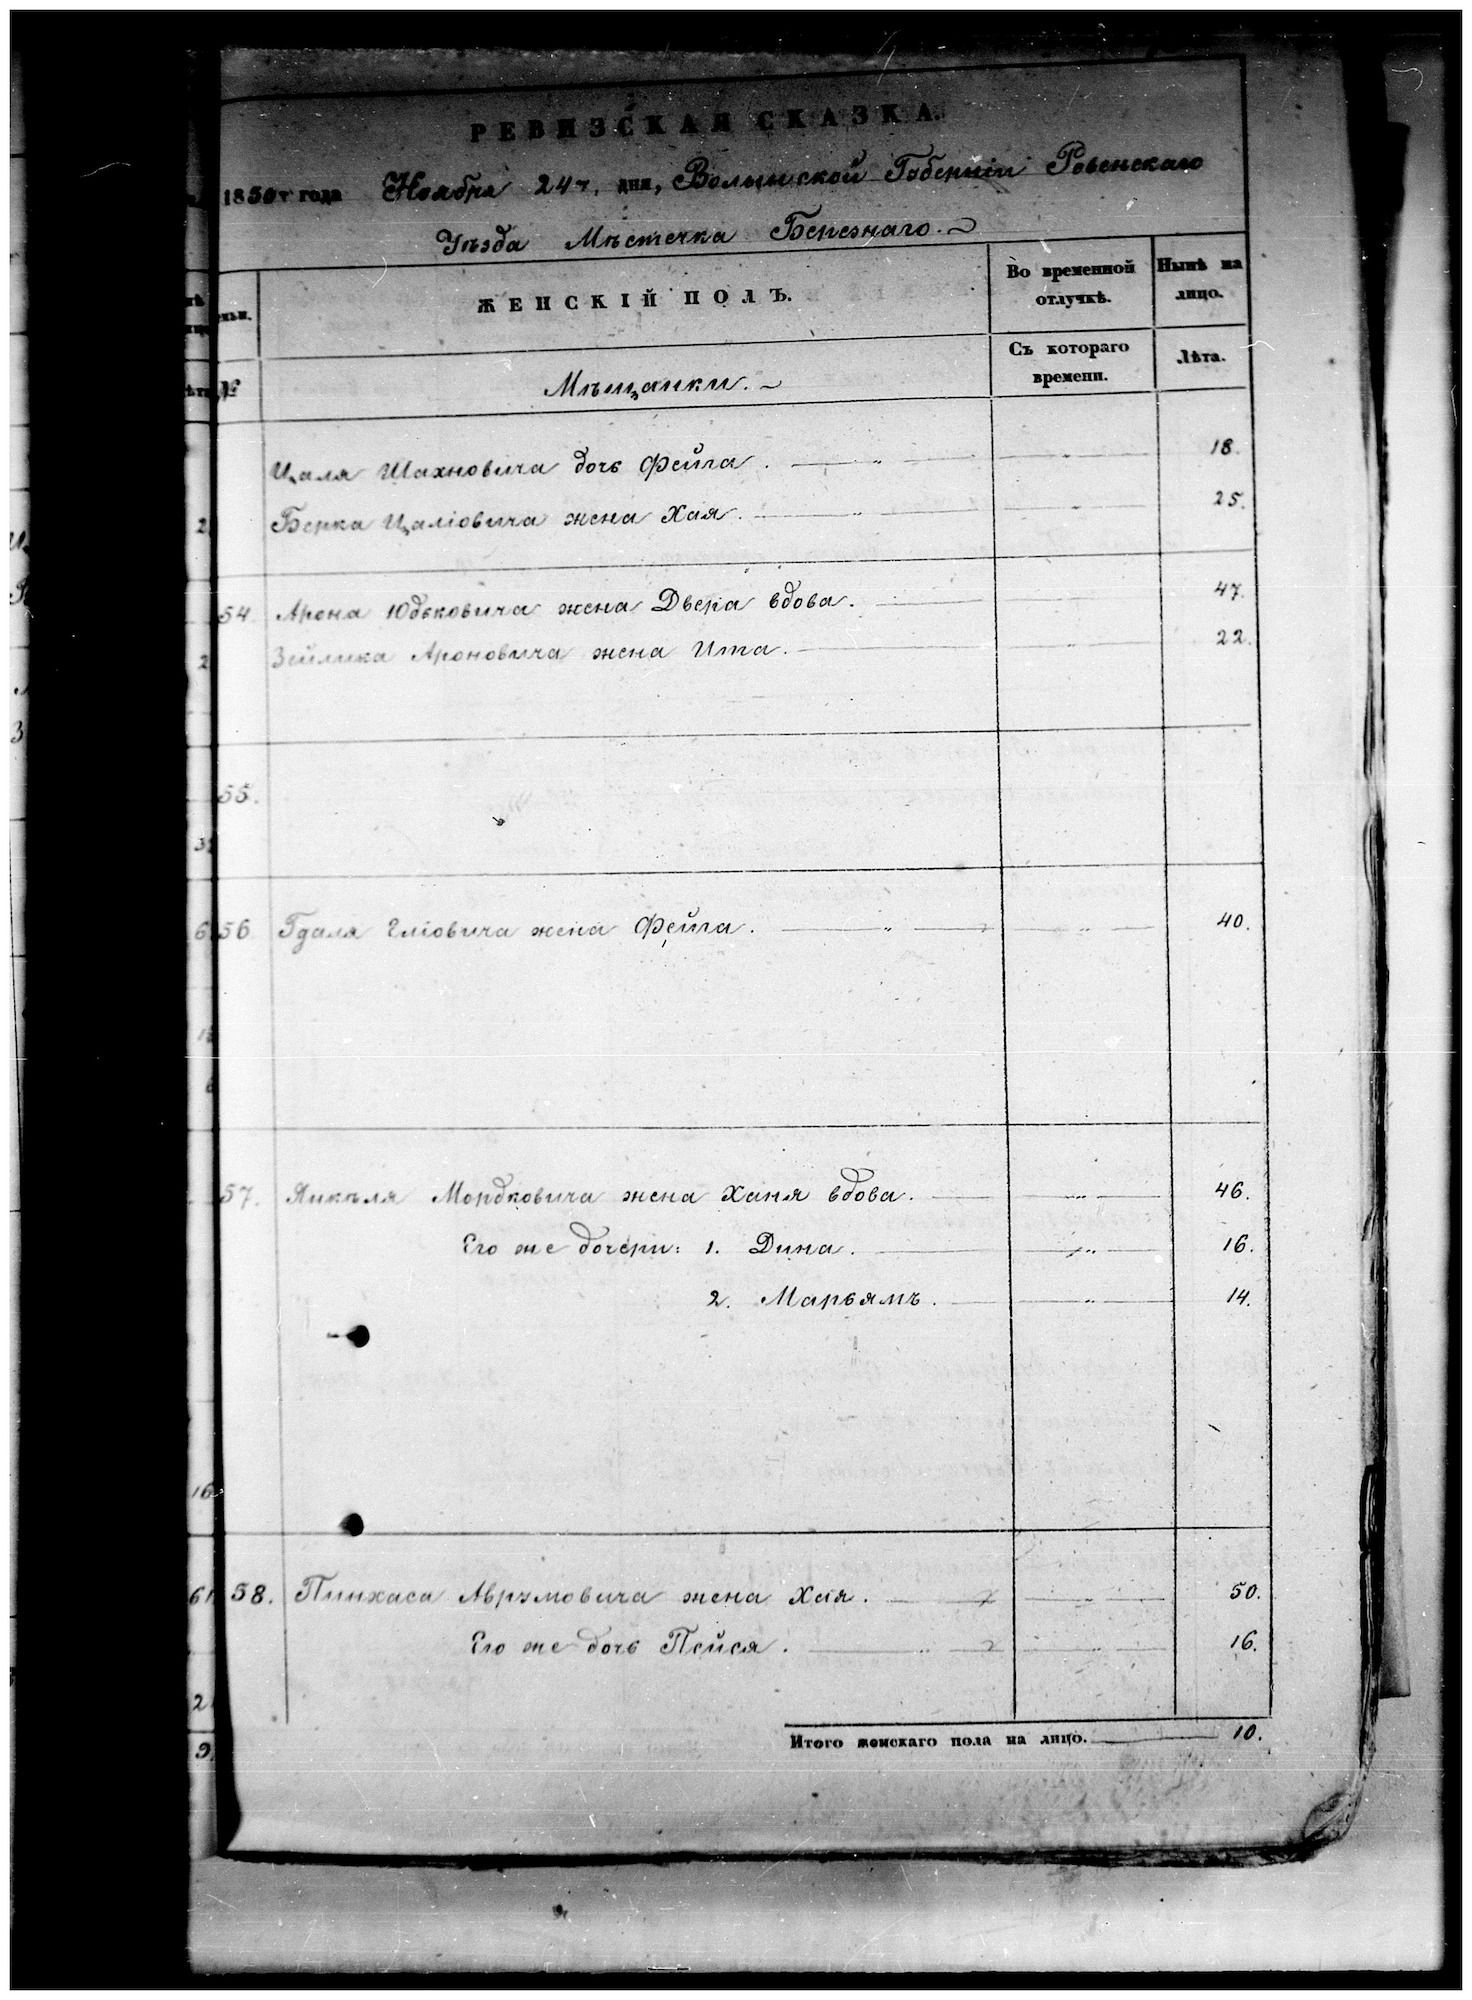 РЕВИЗСКАЯ СКАЗКА.
1850г года Ноября 24г. дня, Волынской Губерніи Ровенскаго
Уѣзда Мѣстечка Березнаго.
ЖЕНСКІЙ ПОЛЪ.
Во временной отлучкѣ.
Нынѣ на лицо.
№
Мѣщанки.
Съ котораго времени.
Лѣта.
Цаля Шахновича дочь Фейга. 18.
Берка Цаліовича жена Хая. 25.
54. Арона Юдьковича жена Двера вдова. 47.
Зейлика Ароновича жена Ита. 22.
55.
56. Гдаля Еліовича жена Фейга. 40.
57. Янкеля Мордковича жена Ханя вдова. 46.
Его же дочери: 1. Дина. 16.
2. Марьямъ. 14.
58. Пинхаса Аврумовича жена Хая. 50.
Его же дочь Пейся. 16.
Итого женскаго пола на лицо. 10.